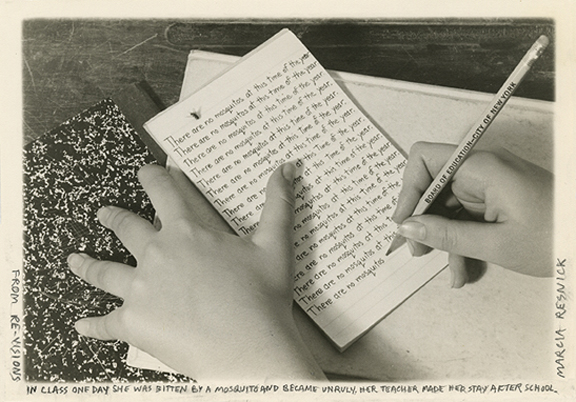 There are no mosquitos at this time of the year
There are no mosquitos at this time of the year.
There are no mosquitos at this time of the year.
There are no mosquitos at this time of the year.
There are no mosquitos at this time of the year.
There are no mosquitos at this time of the year.
There are no mosquitos at this time of the year.
There are no mosquitos at this time of the year.
There are no mosquitos at this time of the year.
There are no mosquitos at this time of the year.
There are no mosquitos at this time of the year.
are no mosquitos at this time of the
are no mosquitos at this time of
There are no mosquitos at this time
There are no mosquitos at this
There are no mosquitos
BOARD OF EDUCATION-CITY OF NEW YORK
FROM RE-VISIONS
MARCIA RESNICK
IN CLASS ONE DAY SHE WAS BITTEN BY A MOSQUITO AND BECAME UNRULY. HER TEACHER MADE HER STAY AFTER SCHOOL.